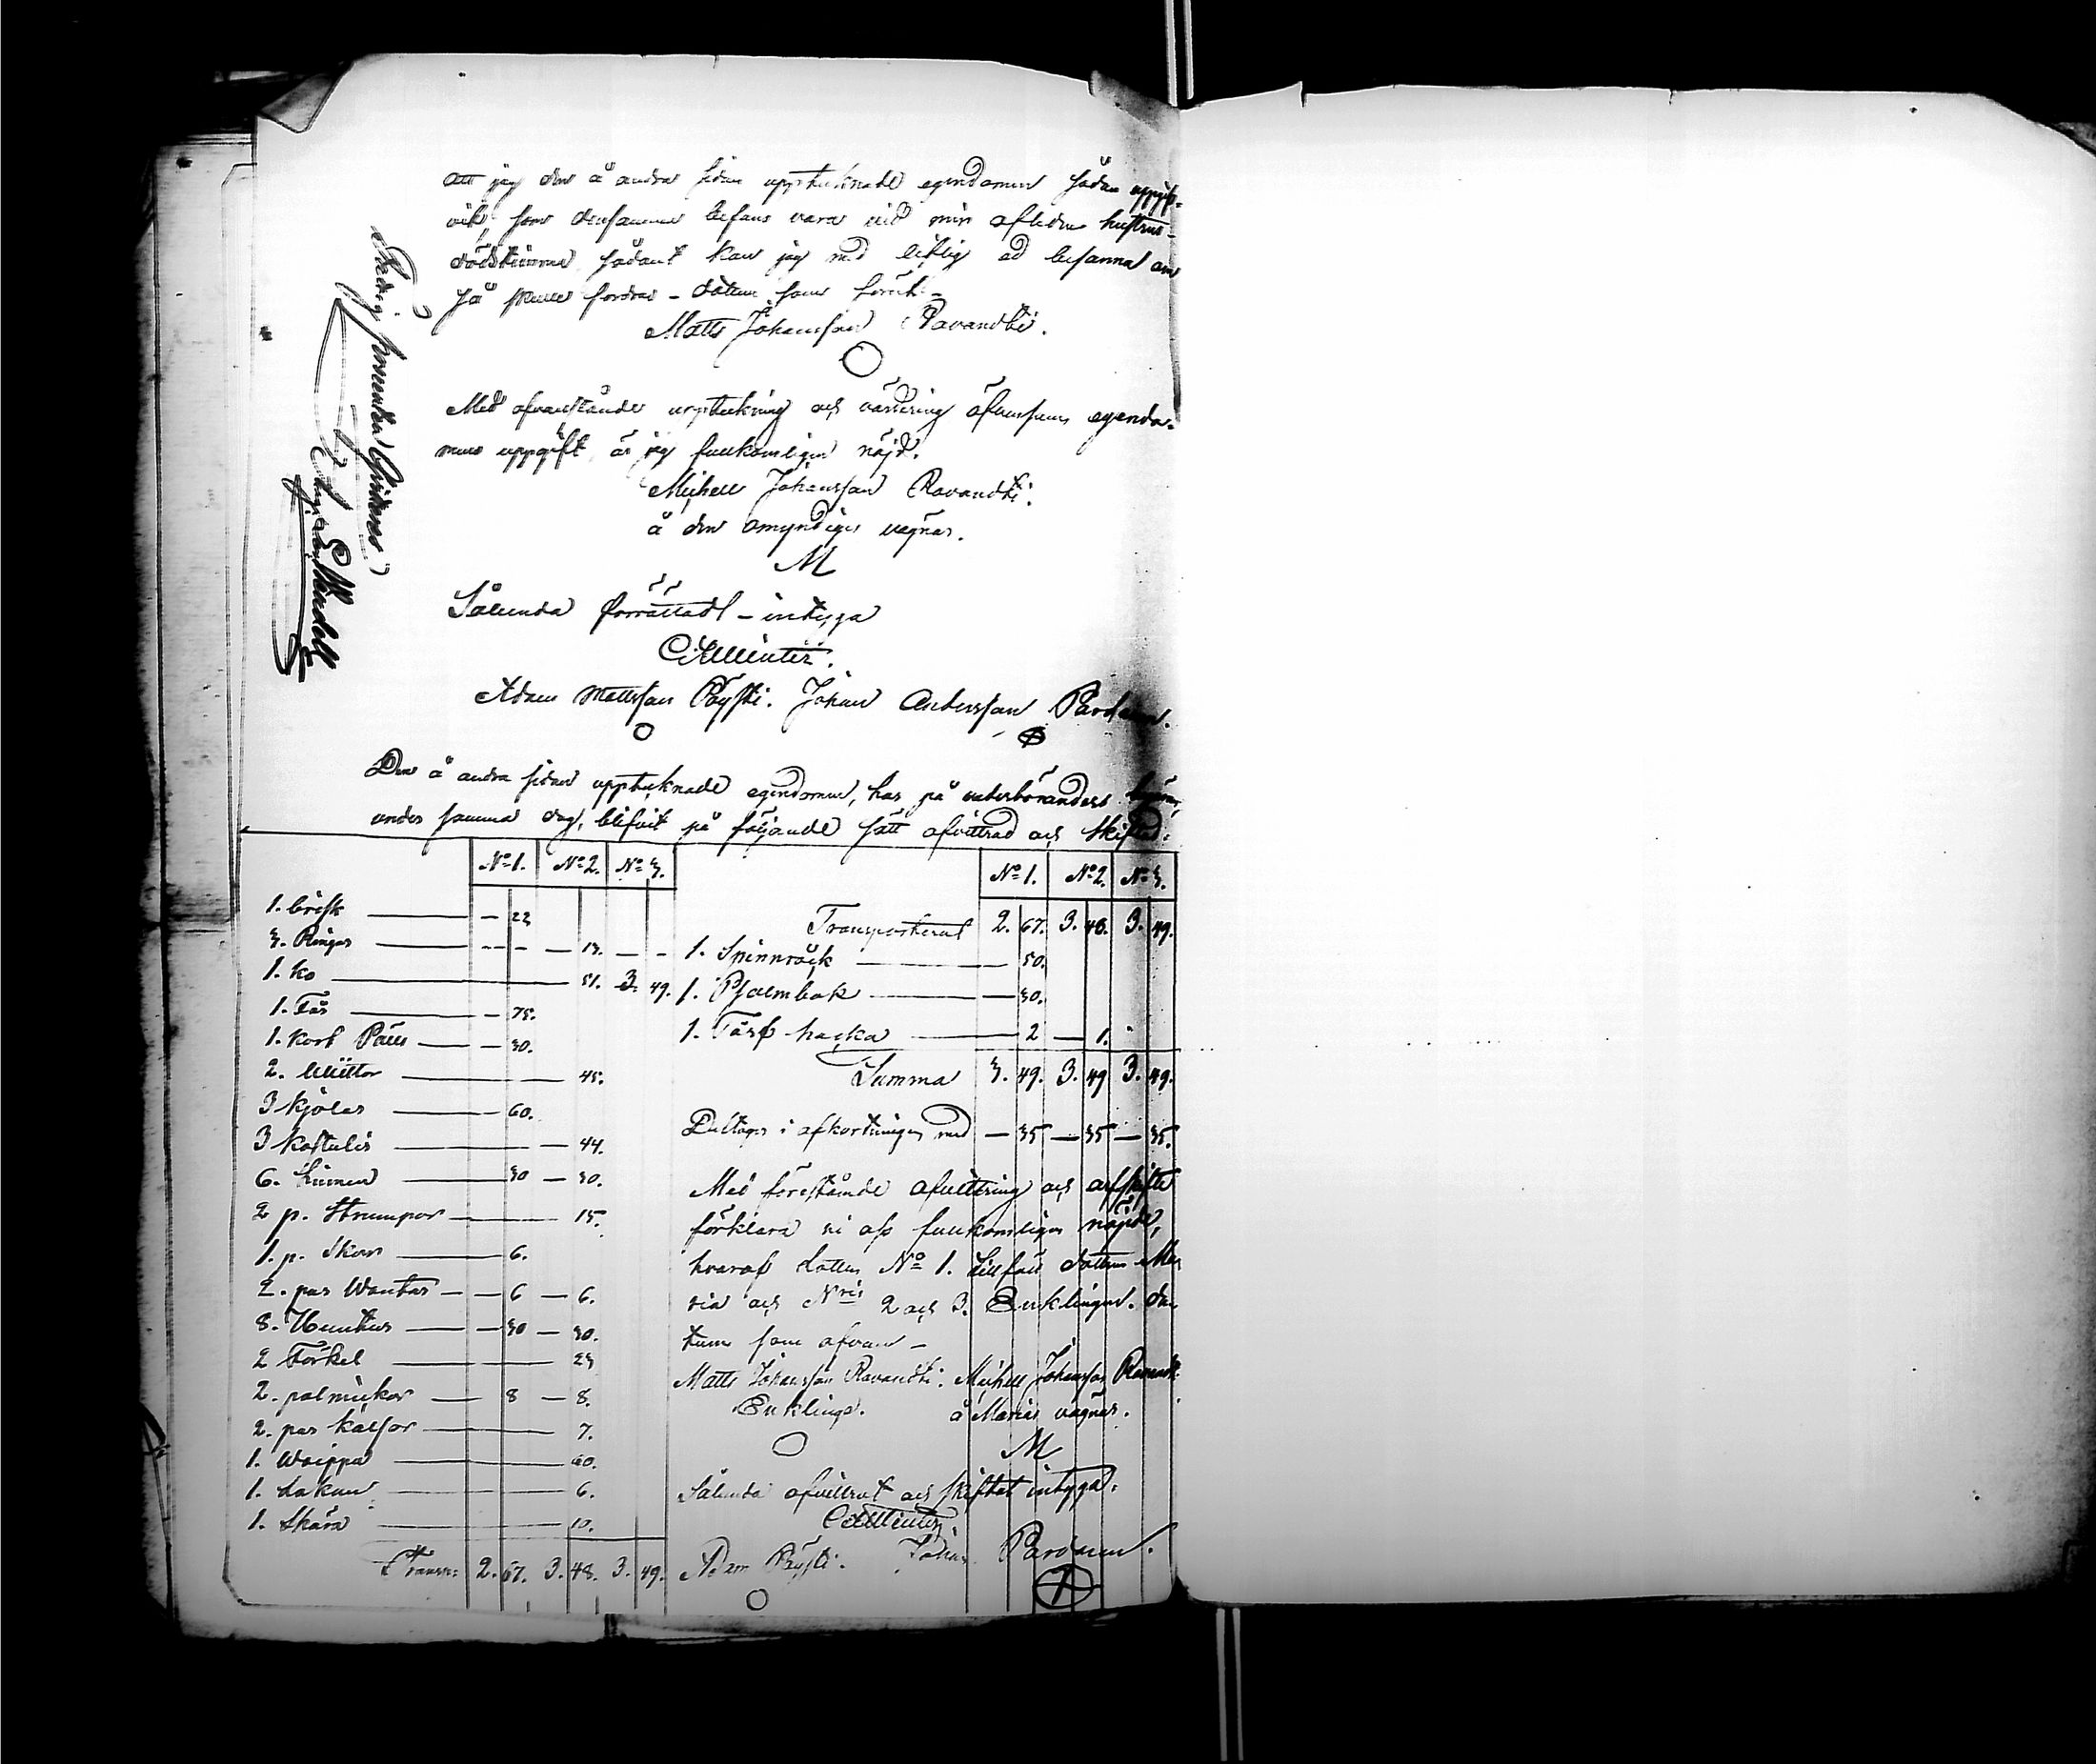 att jag den å andra sidan upptecknade egendomen sådan uppgif-
vit, som densamma befans vara vid min aflidne hustrus
dödstimma, sådant kan jag med liflig ed besanna om
så skulle fordras - datum som förut -
Matts Johansson Ravandti.
Med ofvanstånde uppteckning och värdering äfvensom egendo-
mens uppgift, är jag fullkomligen nöjd.
Michell Johansson Ravandti.
å den omyndiges vägnar.
M
Sålunda förrättadt - intyga
Adam Mattsson Pÿsti. Johan Andersson Pardanen.
Den å andra sidan upptecknade egendomen, har på vederbörandes
under samma dag, blifvit på följande sätt afvittrad och Skiftad:
No 1. No 2. No 3. No 1. No 2. No 3.
1. brisk — 23
3. Ringar — 13.
1. ko — 51. 3. 49.
1. Får — 75.
1. korf Päls — 30.
2. Müttor — 45.
3 kjolar — 60.
3 kostulir — 44.
6. Linnen — 30 — 30.
2 p. Strumpor — 15.
1. p. Skor — 6.
2. par Wantar — 6 — 6.
8. Huutus — 30 — 30.
2 Förkel — 23
2. palmickor — 8 — 8.
2. par kalsor — 7.
1. Waippa — 60.
1. Lakan — 6.
1. Skära — 10.
Transp: 2. 67. 3. 48. 3. 49.
Transporterat 2. 67. 3. 48. 3. 49.
1. Spinnråck — 50.
1. Psalmbok — 30.
1. Tårf-hacka — 2 — 1.
Summa 3. 49. 3. 49 3. 49.
Deltager i afkortningen med — 35 — 35 — 35.
Med förestående afvittring och arfskifte
förklara vi oss fullkomligen nöjde,
hvaraf Lotten No 1. tillföll dottren Ma
ria och Nris 2 och 3. Enklingen. Da-
tum som ofvan -
Matts Johansson Ravandti. Michell Johansson Ravandti
Enkling. å Marias vägnar.
M
Sålunda afvittrat och skiftet intyga.
Adam Pÿsti. Johan Pardanen.